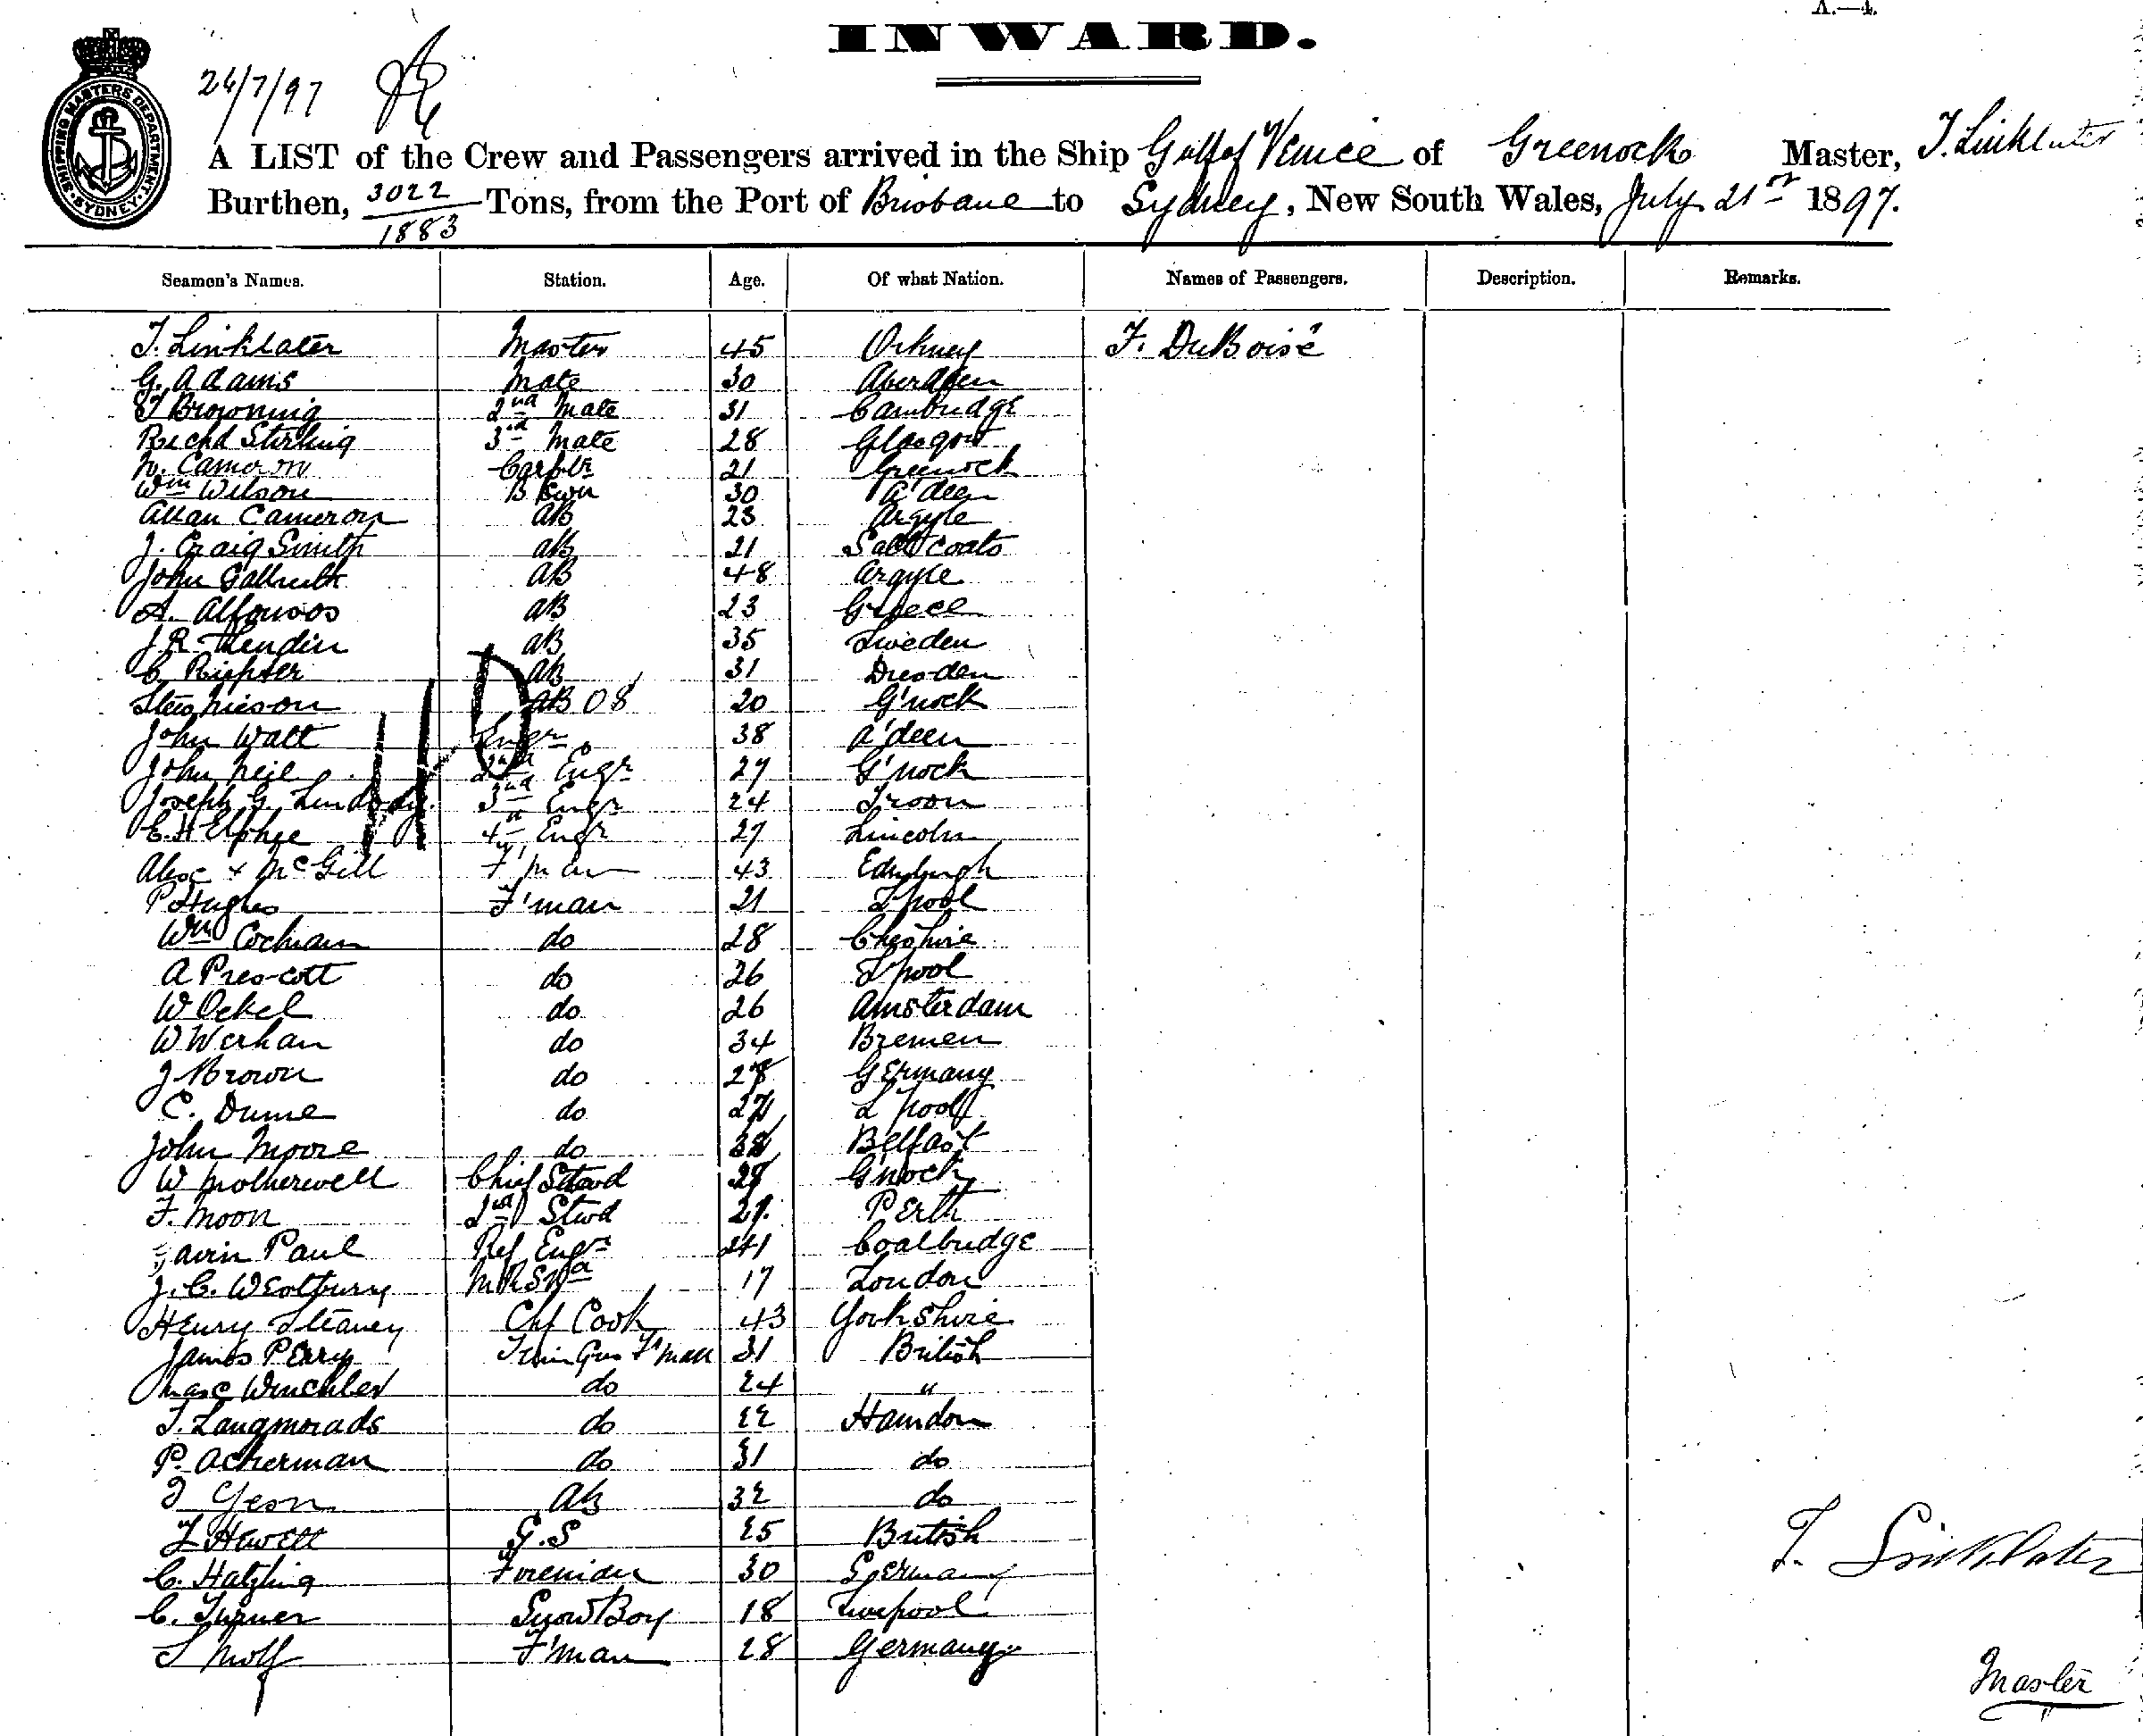 A.—4.
INWARD.
SHIPPING MASTERS DEPARTMENT SYDNEY
24/7/97
A LIST of the Crew and Passengers arrived in the Ship Gulf of Venice of Greenock Master, T. Linklater
Burthen, 3022/1883 Tons, from the Port of Brisbane to Sydney, New South Wales, July 21st 1897.
Seamen's Names. Station. Age. Of what Nation. Names of Passengers. Description. Remarks.
T. Linklater Master 45 Orkney F. DuBoisé
G. Adams Mate 30 Aberdeen
T Browning 2nd Mate 31 Cambridge
Richd Stirling 3rd Mate 28 Glasgow
N. Cameron Carptr 21 Greenock
Wm Wilson 30 A'deen
Allan Cameron AB 23 Argyle
J. Craig Smith AB 21 Saltcoats
John Galbraith AB 48 Argyle
A. AB 23 Greece
J.R. AB 35 Sweden
C. AB 31 Dresden
Stephieson AB 08 20 G'nock
John Watt Engr 38 A'deen
John Neil 2nd Engr 27 G'nock
Joseph G. Lindsay 3rd Engr 24 Troon
E.H. Elphee 4th Engr 27 Lincoln
Alex McGill F'man 43 Edinburgh
P Hughes F'man 21 L'pool
Wm Cochram do 28 Cheshire
A Prescott do 26 L'pool
W Ockel do 26 Amsterdam
W Werhan do 34 Bremen
J Brown do 28 Germany
C. Dume do 27 L'pool
John Moore do 38 Belfast
W Motherwell Chief Stewd 29 G'nock
F. Moon 2nd Stwd 27 Perth
Gavin Paul Ref Engr 41 Coalbridge
J. C. Westbury 17 London
Henry Steaney Chf Cook 43 Yorkshire
James Perry F'man 31 British
Winchler do 24 "
T. Langmorads do 22
P. Ackerman do 31 do
J Yeon AB 32 do
T Hewett G.S 25 British
C. Hatzling Fireman 30 Germany
C. Turner Boy 18 Liverpool
F'man 28 Germany
T. Linklater
Master